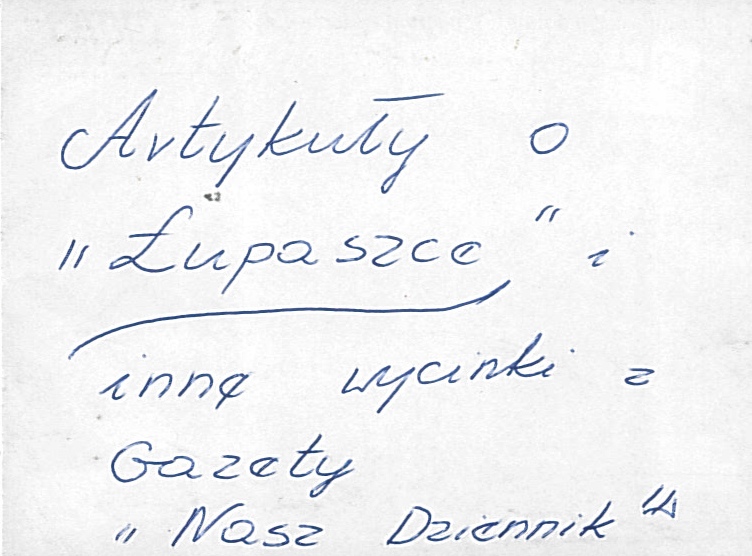 Artykuły o
"Łupaszce" i
inne wycinki z
Gazety
"Nasz Dziennik"